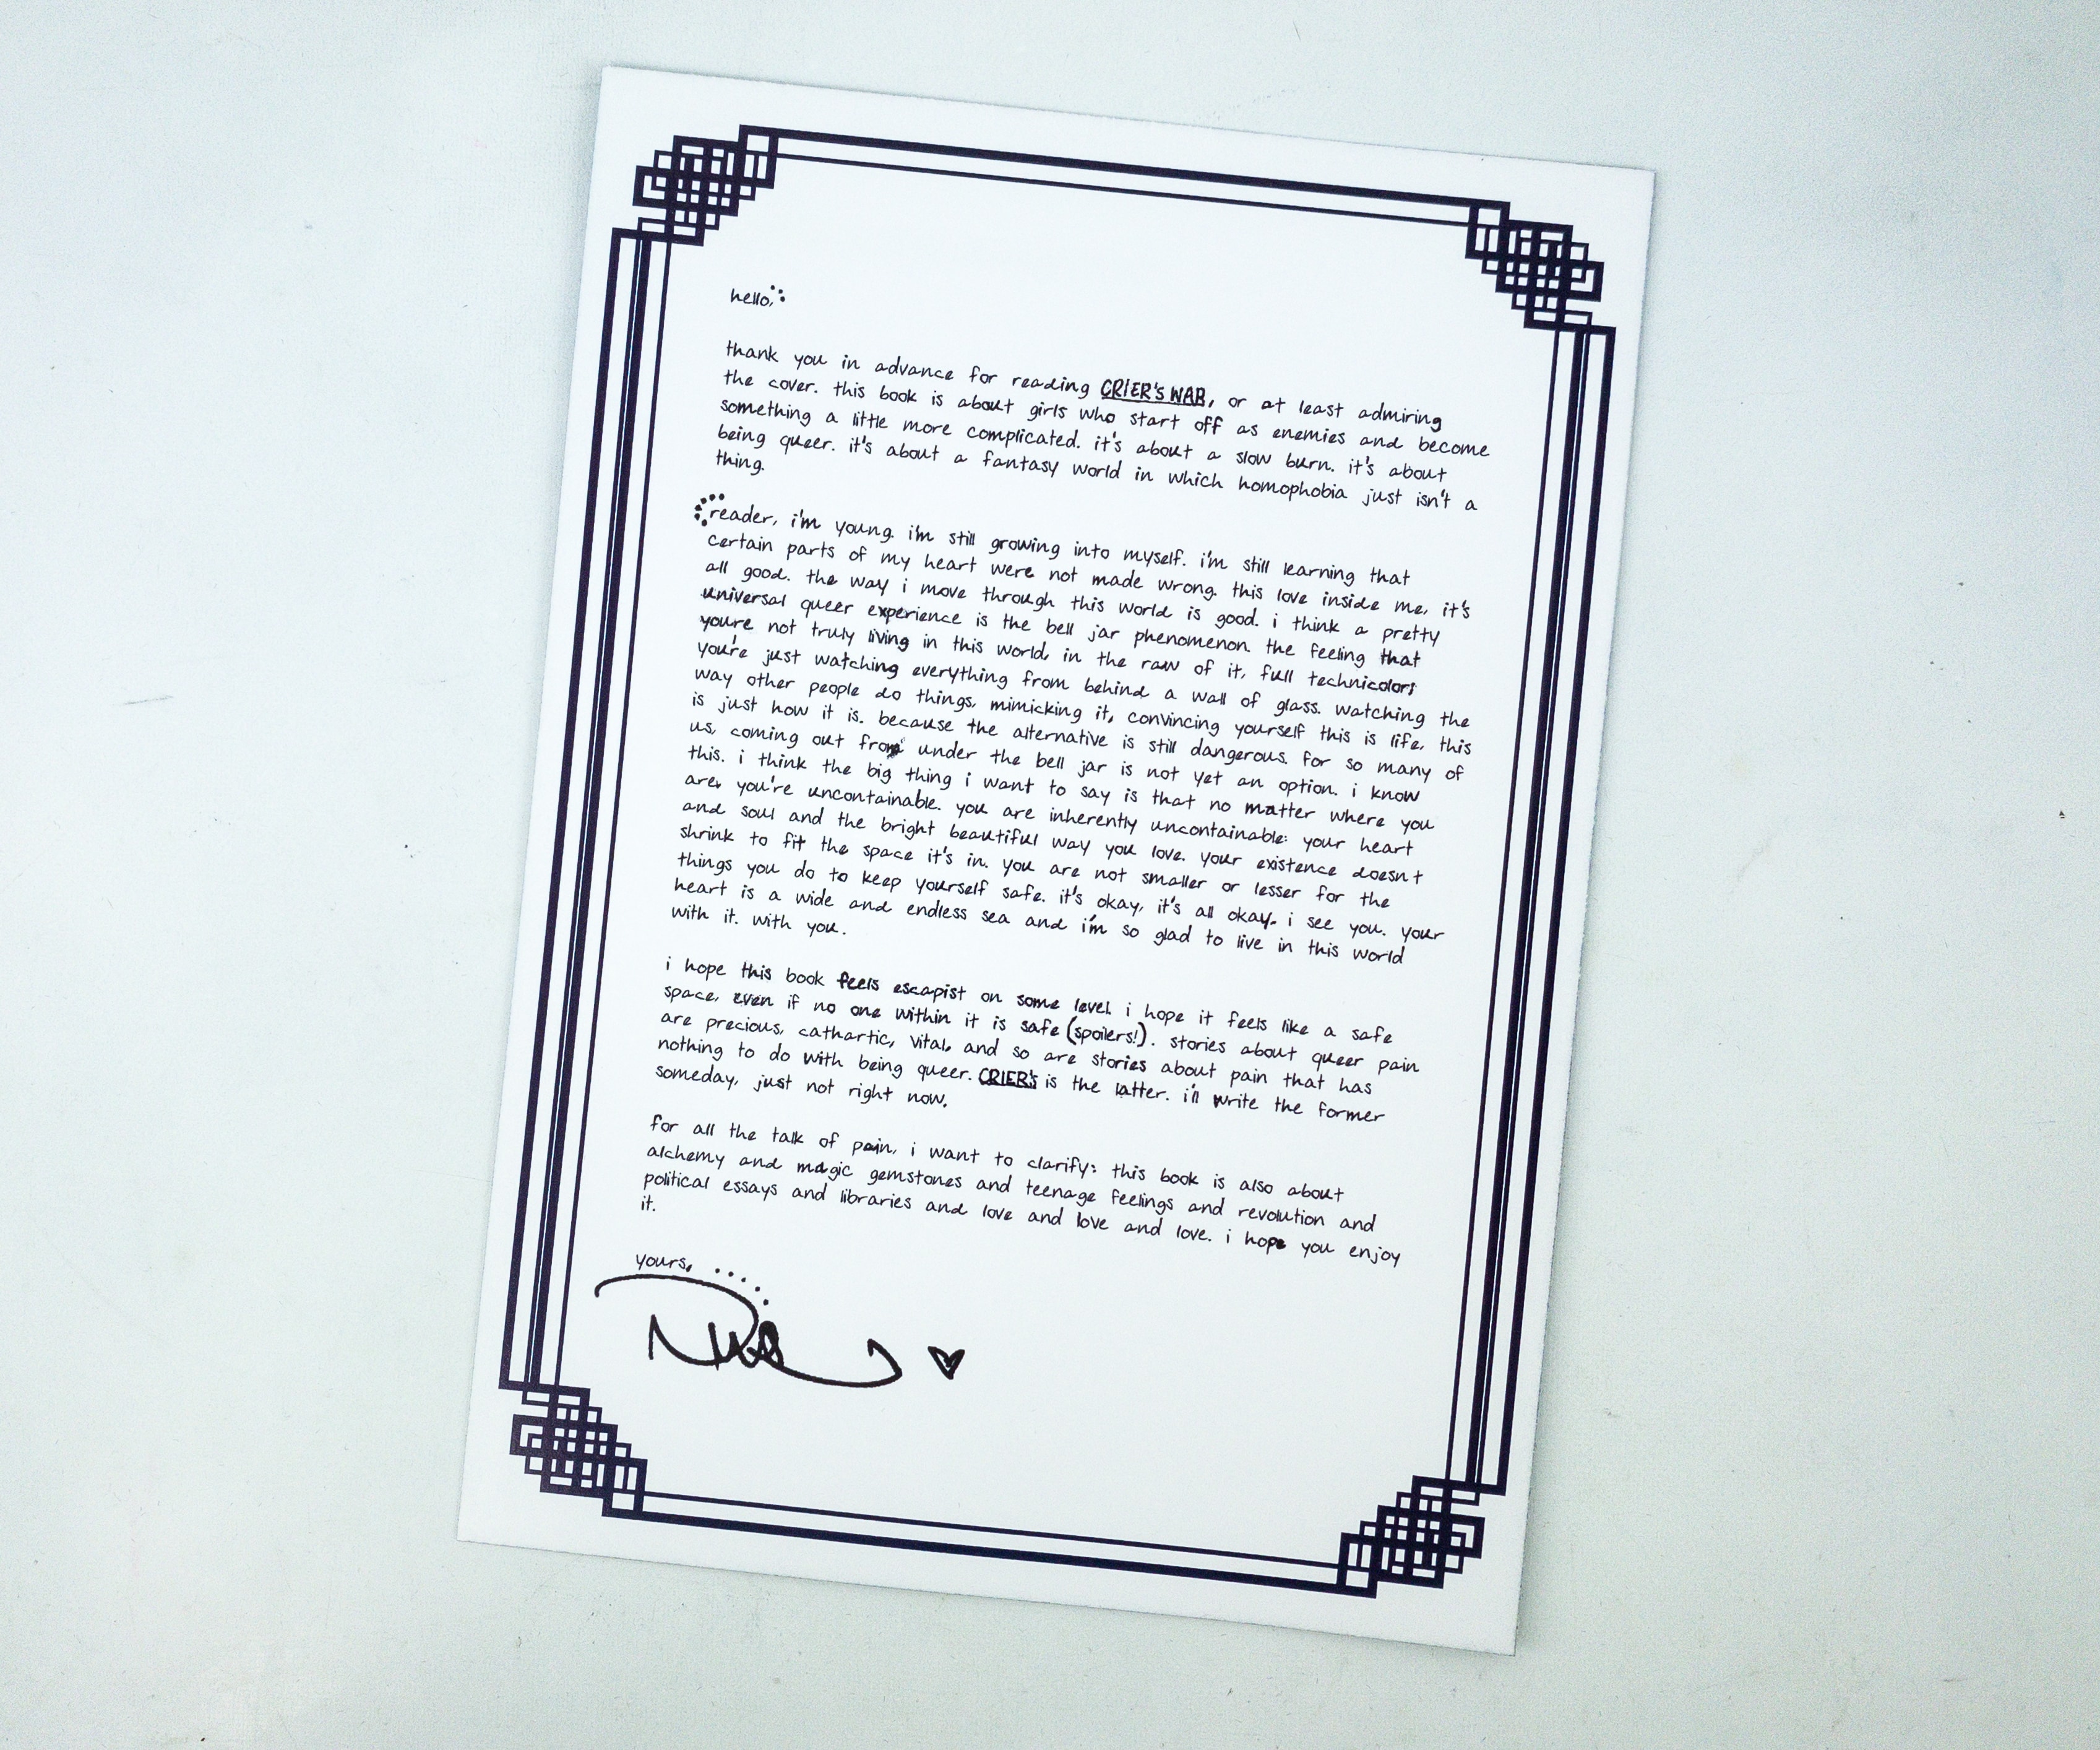 hello,
thank you in advance for reading CRIER'S WAR, or at least admiring
the cover. this book is about girls who start off as enemies and become
something a little more complicated. it's about a slow burn. it's about
being queer. it's about a fantasy world in which homophobia just isn't a
thing.
reader, i'm young. i'm still growing into myself. i'm still learning that
certain parts of my heart were not made wrong. this love inside me, it's
all good. the way i move through this world is good. i think a pretty
universal queer experience is the bell jar phenomenon. the feeling that
you're not truly living in this world, in the raw of it, full technicolor;
you're just watching everything from behind a wall of glass. watching the
way other people do things, mimicking it, convincing yourself this is life, this
is just how it is. because the alternative is still dangerous. for so many of
us, coming out from under the bell jar is not yet an option. i know
this. i think the big thing i want to say is that no matter where you
are, you're uncontainable. you are inherently uncontainable: your heart
and soul and the bright beautiful way you love. your existence doesn't
shrink to fit the space it's in. you are not smaller or lesser for the
things you do to keep yourself safe. it's okay, it's all okay. i see you. your
heart is a wide and endless sea and i'm so glad to live in this world
with it. with you.
i hope this book feels escapist on some level. i hope it feels like a safe
space, even if no one within it is safe (spoilers!). stories about queer pain
are precious, cathartic, vital, and so are stories about pain that has
nothing to do with being queer. CRIER'S is the latter. i'll write the former
someday, just not right now.
for all the talk of pain, i want to clarify: this book is also about
alchemy and magic gemstones and teenage feelings and revolution and
political essays and libraries and love and love and love. i hope you enjoy
it.
yours,